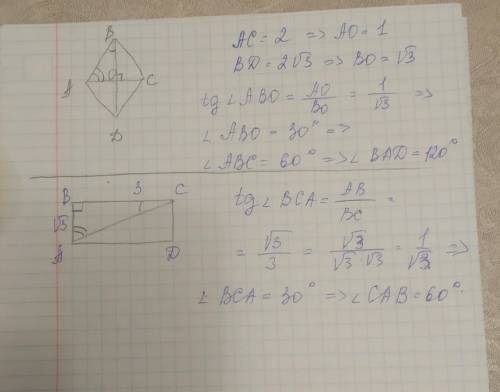 B
A O C
D
AC = 2 => AO = 1
BD = 2√3 => BO = √3
tg ∠ ABO = AO/BO = 1/√3 =>
∠ ABO = 30° =>
∠ ABC = 60° => ∠ BAD = 120°
B 3 C
√3
A D
tg ∠ BCA = AB/BC =
= √3/3 = √3/(√3·√3) = 1/√3 =>
∠ BCA = 30° => ∠ CAB = 60°.